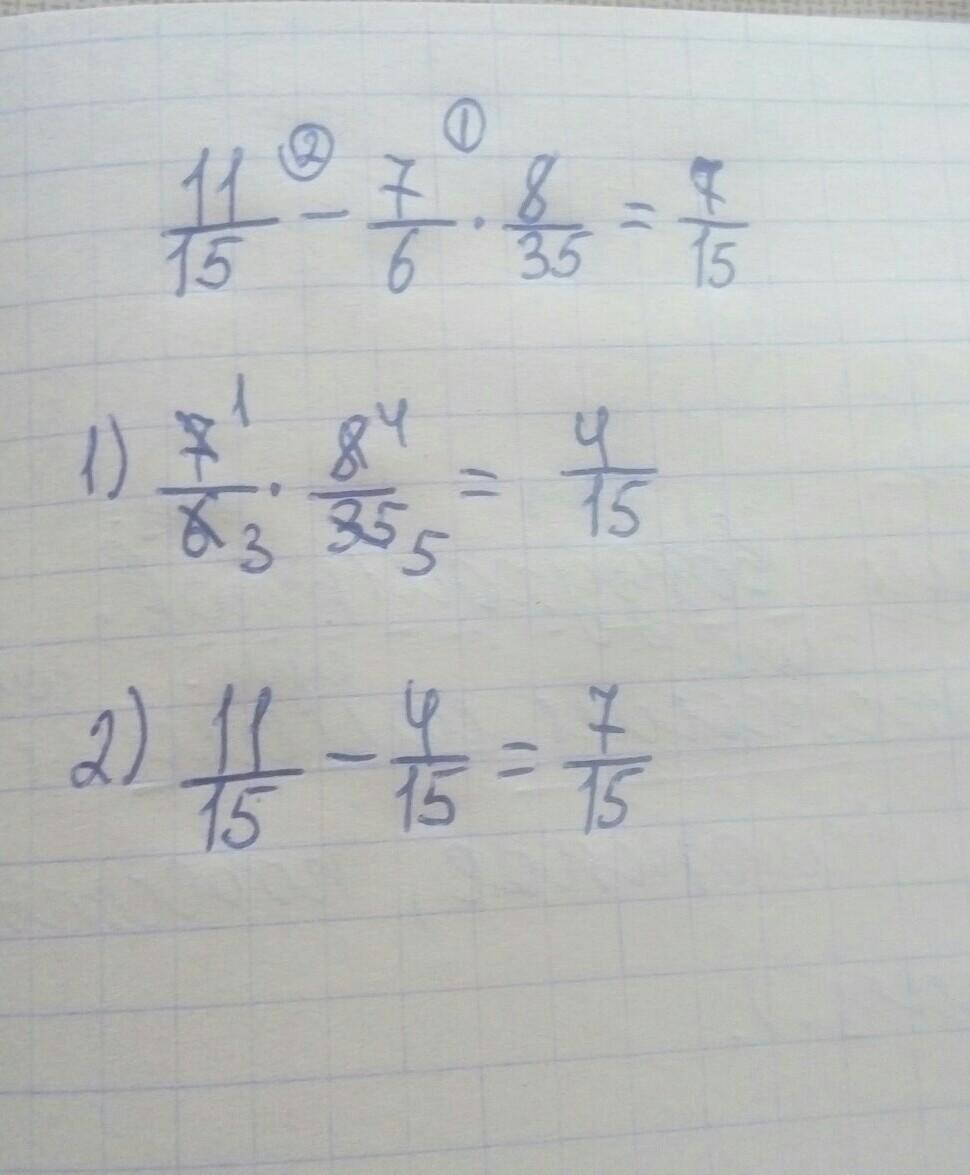 11/15 ② − 7/6 ① · 8/35 = 7/15
1) 7 1/6 3 · 8 4/35 5 = 4/15
2) 11/15 − 4/15 = 7/15